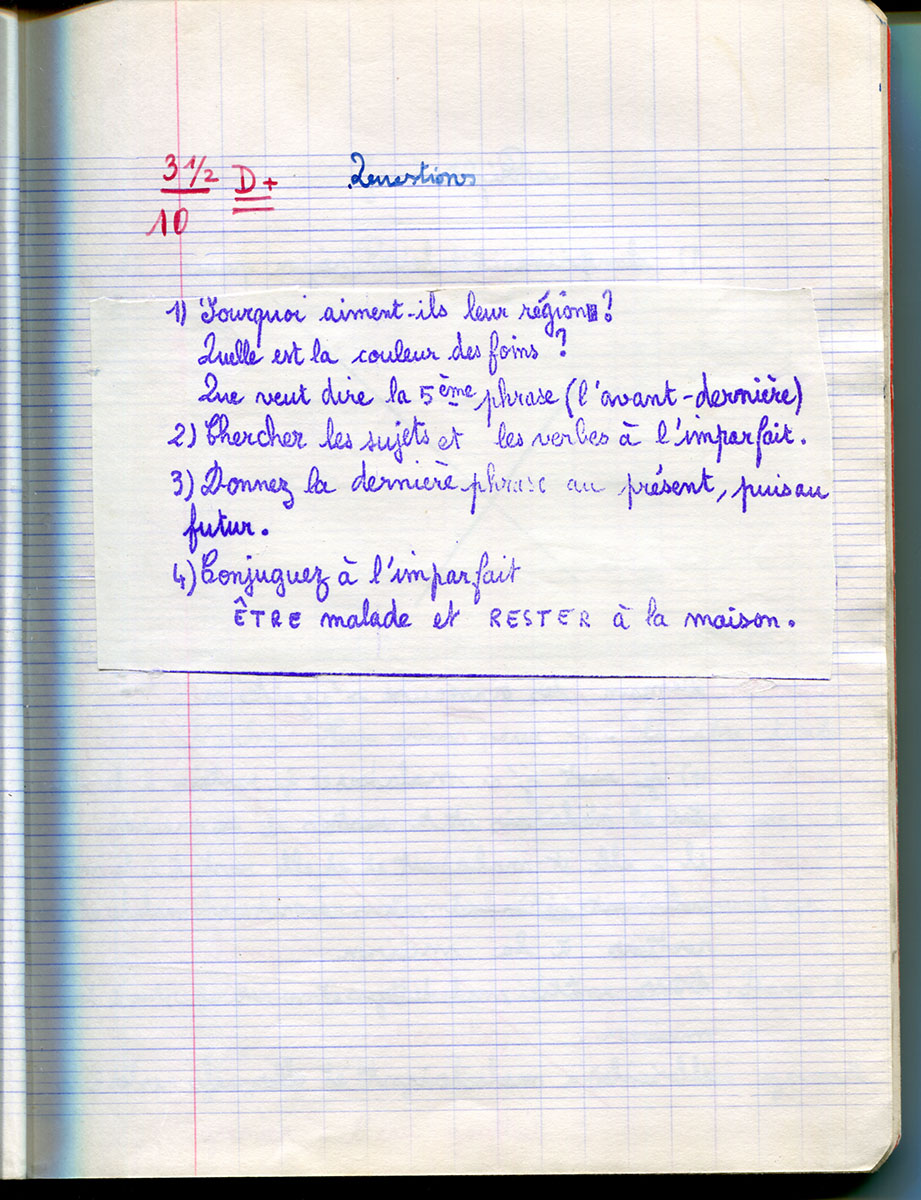 3 1/2 D+ Questions
10
1) Pourquoi aiment-ils leur région ?
Quelle est la couleur des foins ?
Que veut dire la 5ème phrase (l'avant-dernière)
2) Chercher les sujets et les verbes à l'imparfait.
3) Donnez la dernière phrase au présent, puis au
futur.
4) Conjuguez à l'imparfait
ÊTRE malade et RESTER à la maison.